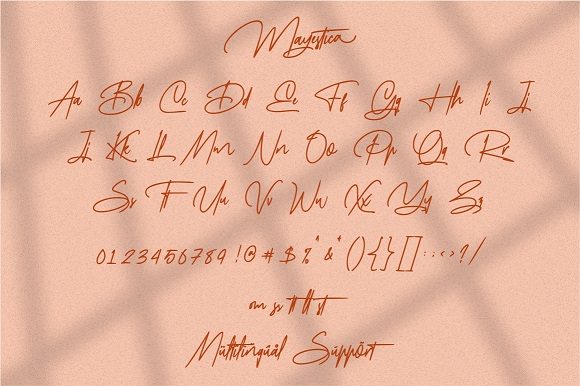 Mayestica
Aa Bb Cc Dd Ee Ff Gg Hh Ii Jj
Jj Kk Ll Mm Nn Oo Pp Qq Rr
Ss Tt Uu Vv Ww Xx Yy Zz
0123456789 !@#$%^&*(){}[]:;<>?/
om ss tt ll st
Mültilingüål Süppõrt